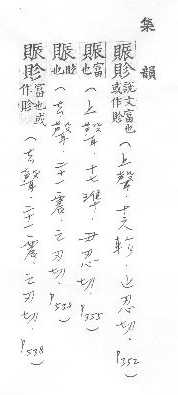 集韻
賑䝩 說文富也或作䝩(上聲.十六軫.止忍切.P.352)
賑 富也(上聲.十七準.丑忍切.P.355)
賑 也(去聲.二十一震.之刃切.P.538)
賑䝩 富也或作䝩(去聲.二十一震.之刃切.P.538)